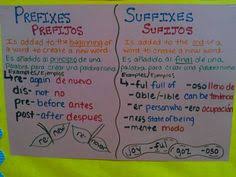 PREFIXES
PREFIJOS
Is added to the beginning of
a word to create a new word.
Es añadido al principio de una
palabra para crear una palabra nueva.
Examples/Ejemplos
re- again de nuevo
dis- not no
pre- before antes
post- after despues
re
nor
SUFFIXES
SUFIJOS
Is added to the end of a
word to create a new word.
Es añadido al final de una
palabra para crear una palabra nueva.
Examples/Ejemplos
-ful full of -oso lleno de
-able/-ible can be tendencia
-er person who -ero ocupación
-ness state of being
-mente modo
joy
-ful
goz
-oso